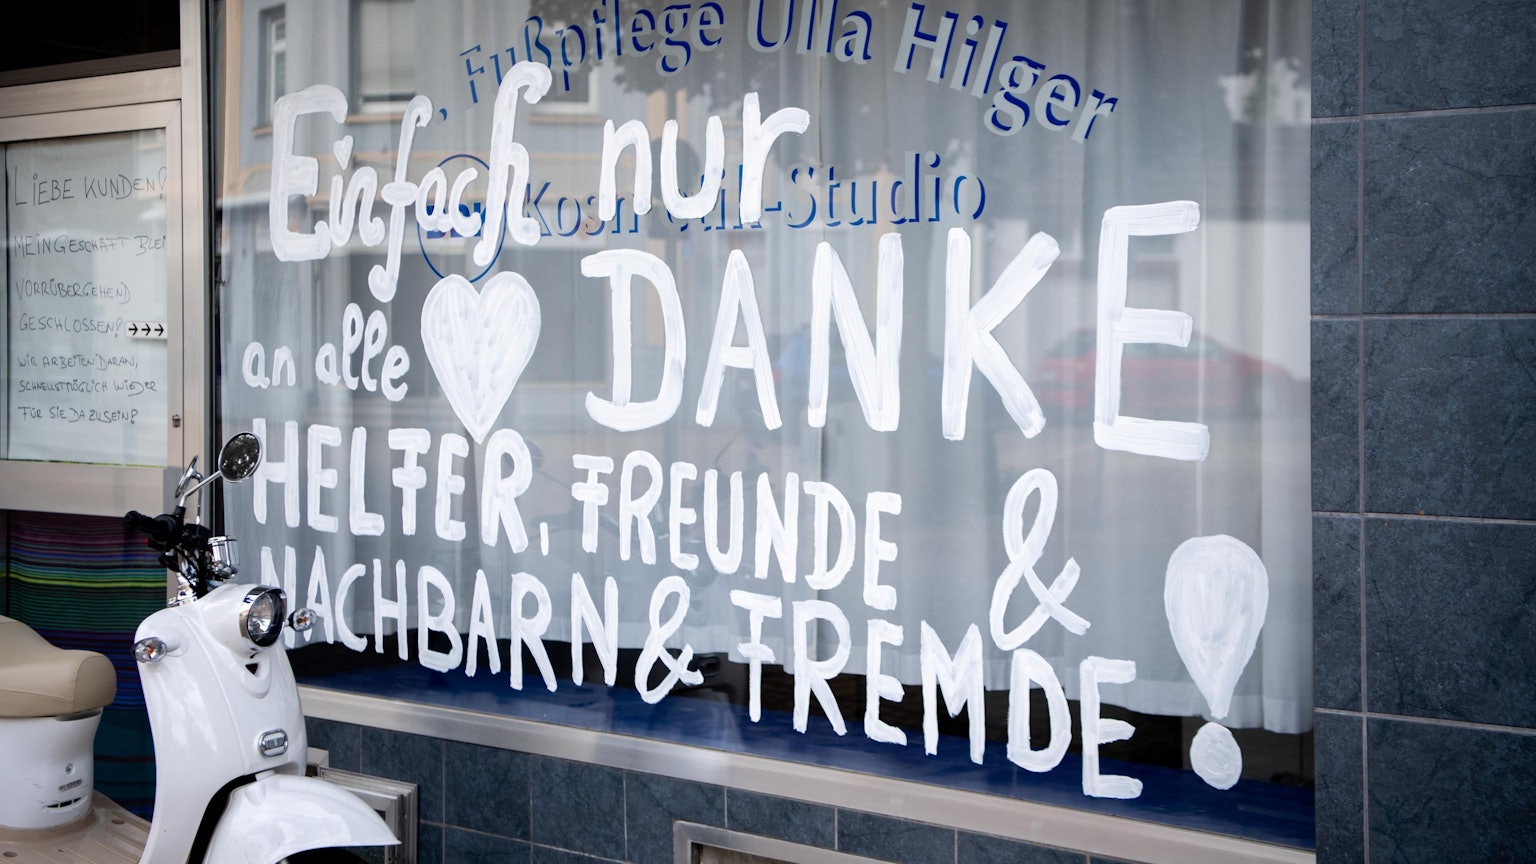 , Fußpflege Ulla Hilger
Kosmetik-Studio
Einfach nur
DANKE
an alle
HELFER, FREUNDE &
NACHBARN & FREMDE!
LIEBE KUNDEN!
MEIN GESCHÄFT BLEI
VORRÜBERGEHEND
GESCHLOSSEN!
WIR ARBEITEN DARAN,
SCHNELLSTMÖGLICH WIEDER
FÜR SIE DA ZU SEIN!